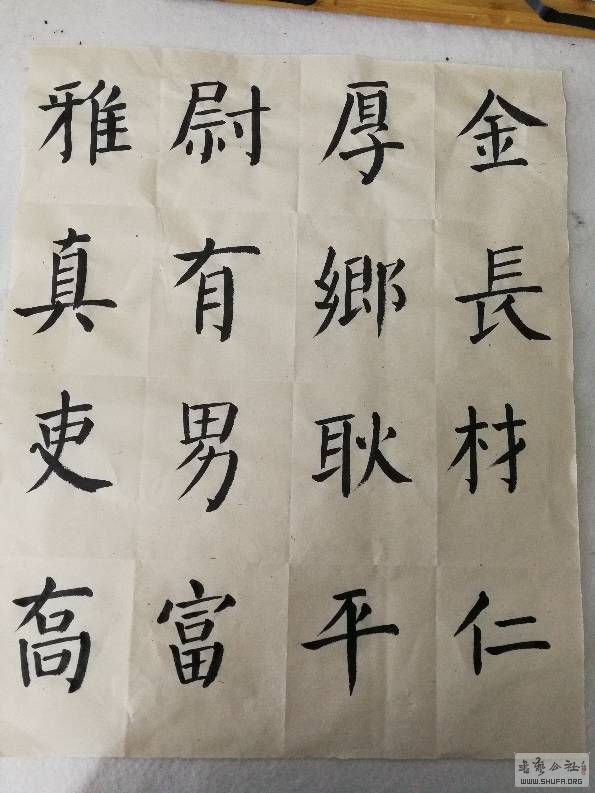 金長材仁
厚鄉耿平
尉有男富
雅真吏
书艺公社
WWW.SHUFA.ORG